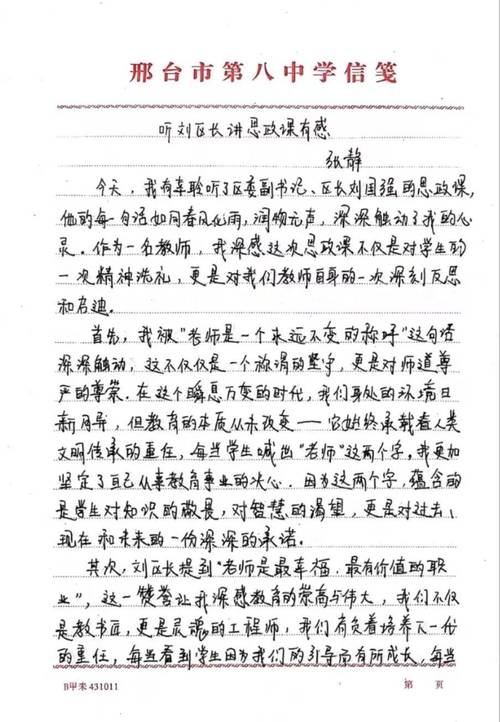 邢台市第八中学信笺
听刘区长讲思政课有感
张静
今天，我有幸聆听了区委副书记、区长刘国强的思政课，
他的每一句话如同春风化雨，润物无声，深深触动了我的心
灵。作为一名教师，我深感这次思政课不仅是对学生的
一次精神洗礼，更是对我们教师自身的一次深刻反思
和启迪.
首先，我被"老师是一个永远不变的称呼"这句话
深深触动，这不仅仅是一个称谓的坚守，更是对师道尊
严的尊崇。在这个瞬息万变的时代，我们身处的环境日
新月异，但教育的本质从未改变——它始终承载着人类
文明传承的重任，每当学生喊出"老师"这两个字，我更加
坚定了自己从事教育事业的决心。因为这两个字，蕴含的
是学生对知识的敬畏，对智慧的渴望，更是对过去、
现在和未来的一份深深的承诺.
其次，刘区长提到"老师是最幸福、最有价值的职
业"，这一赞誉让我深感教育的崇高与伟大，我们不仅
是教书匠，更是灵魂的工程师，我们肩负着培养下一代
的重任，每当看到学生因为我们的引导而有所成长，每当
B甲未431011
第 页